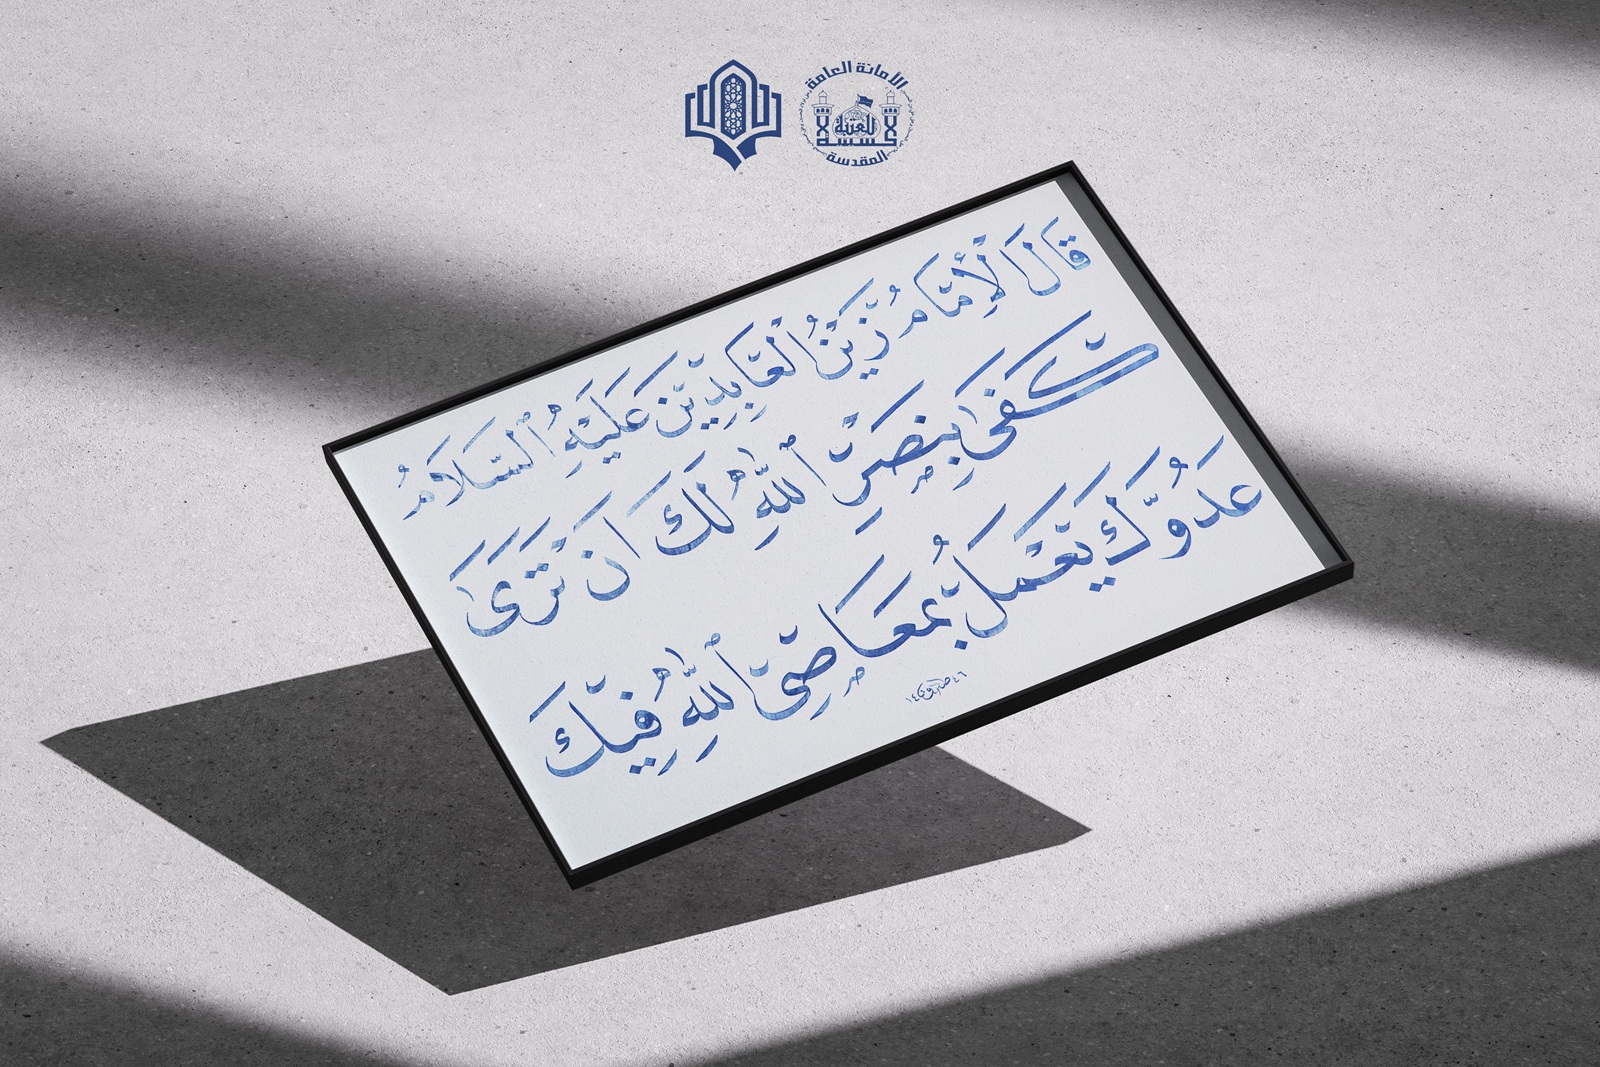 الأمانة العامة
للعتبة
الحسينية
المقدسة
قَالَ الْإِمَامُ زَيْنُ الْعَابِدِيْنَ عَلَيْهِ السَّلَامُ
كَفَىٰ بِنَصْرِ اللّٰهِ لَكَ اَنْ تَرَىٰ
عَدُوَّكَ يَعْمَلُ بِمَعَاصِي اللّٰهِ فِيْكَ